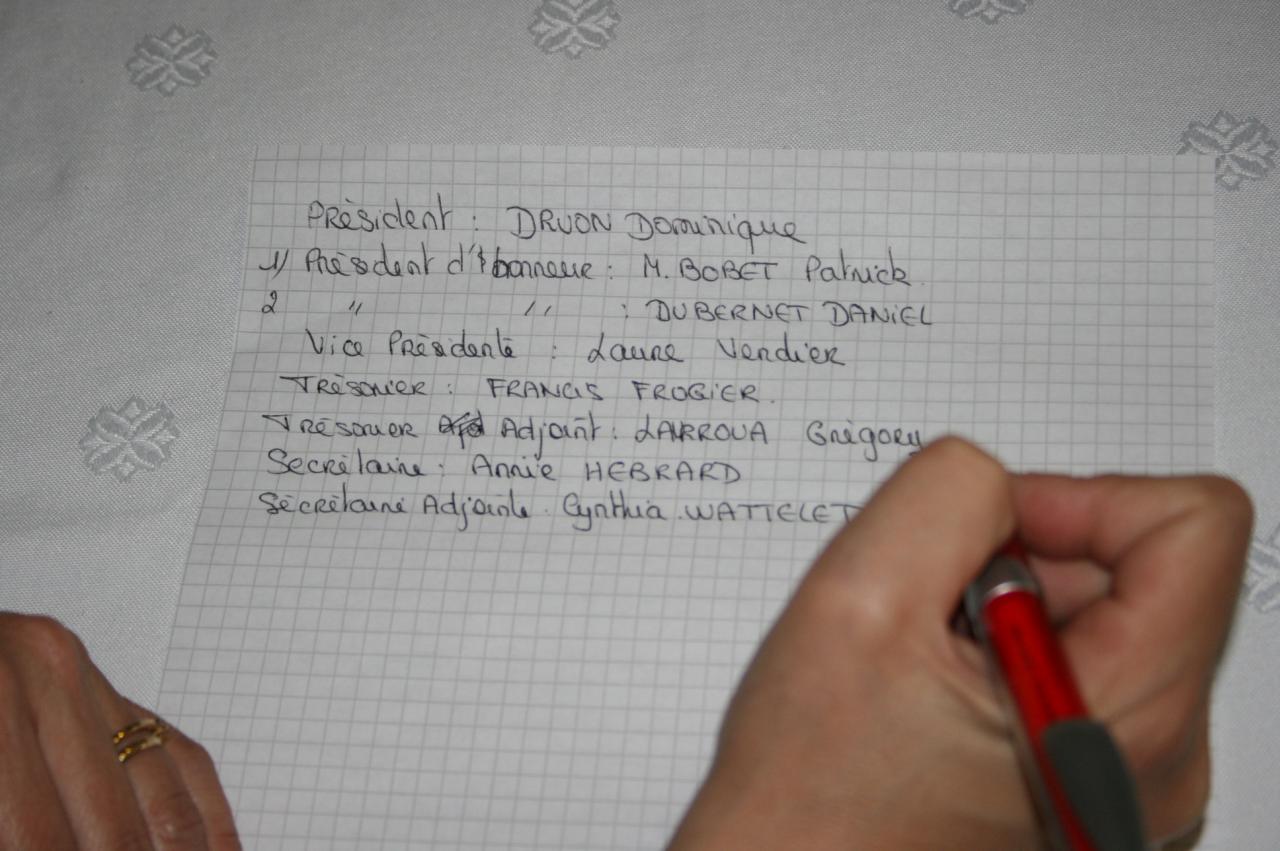 Président : DRUON Dominique
1) Président d'honneur : M. BOBET Patrick
2 " " : DUBERNET DANIEL
Vice Présidente : Laure Verdier
Trésorier : FRANCIS FROGIER.
Trésorier Adjoint : LARROUA Grégory
Secrétaire : Annie HEBRARD
Sécrétaire Adjointe . Cynthia . WATTELET